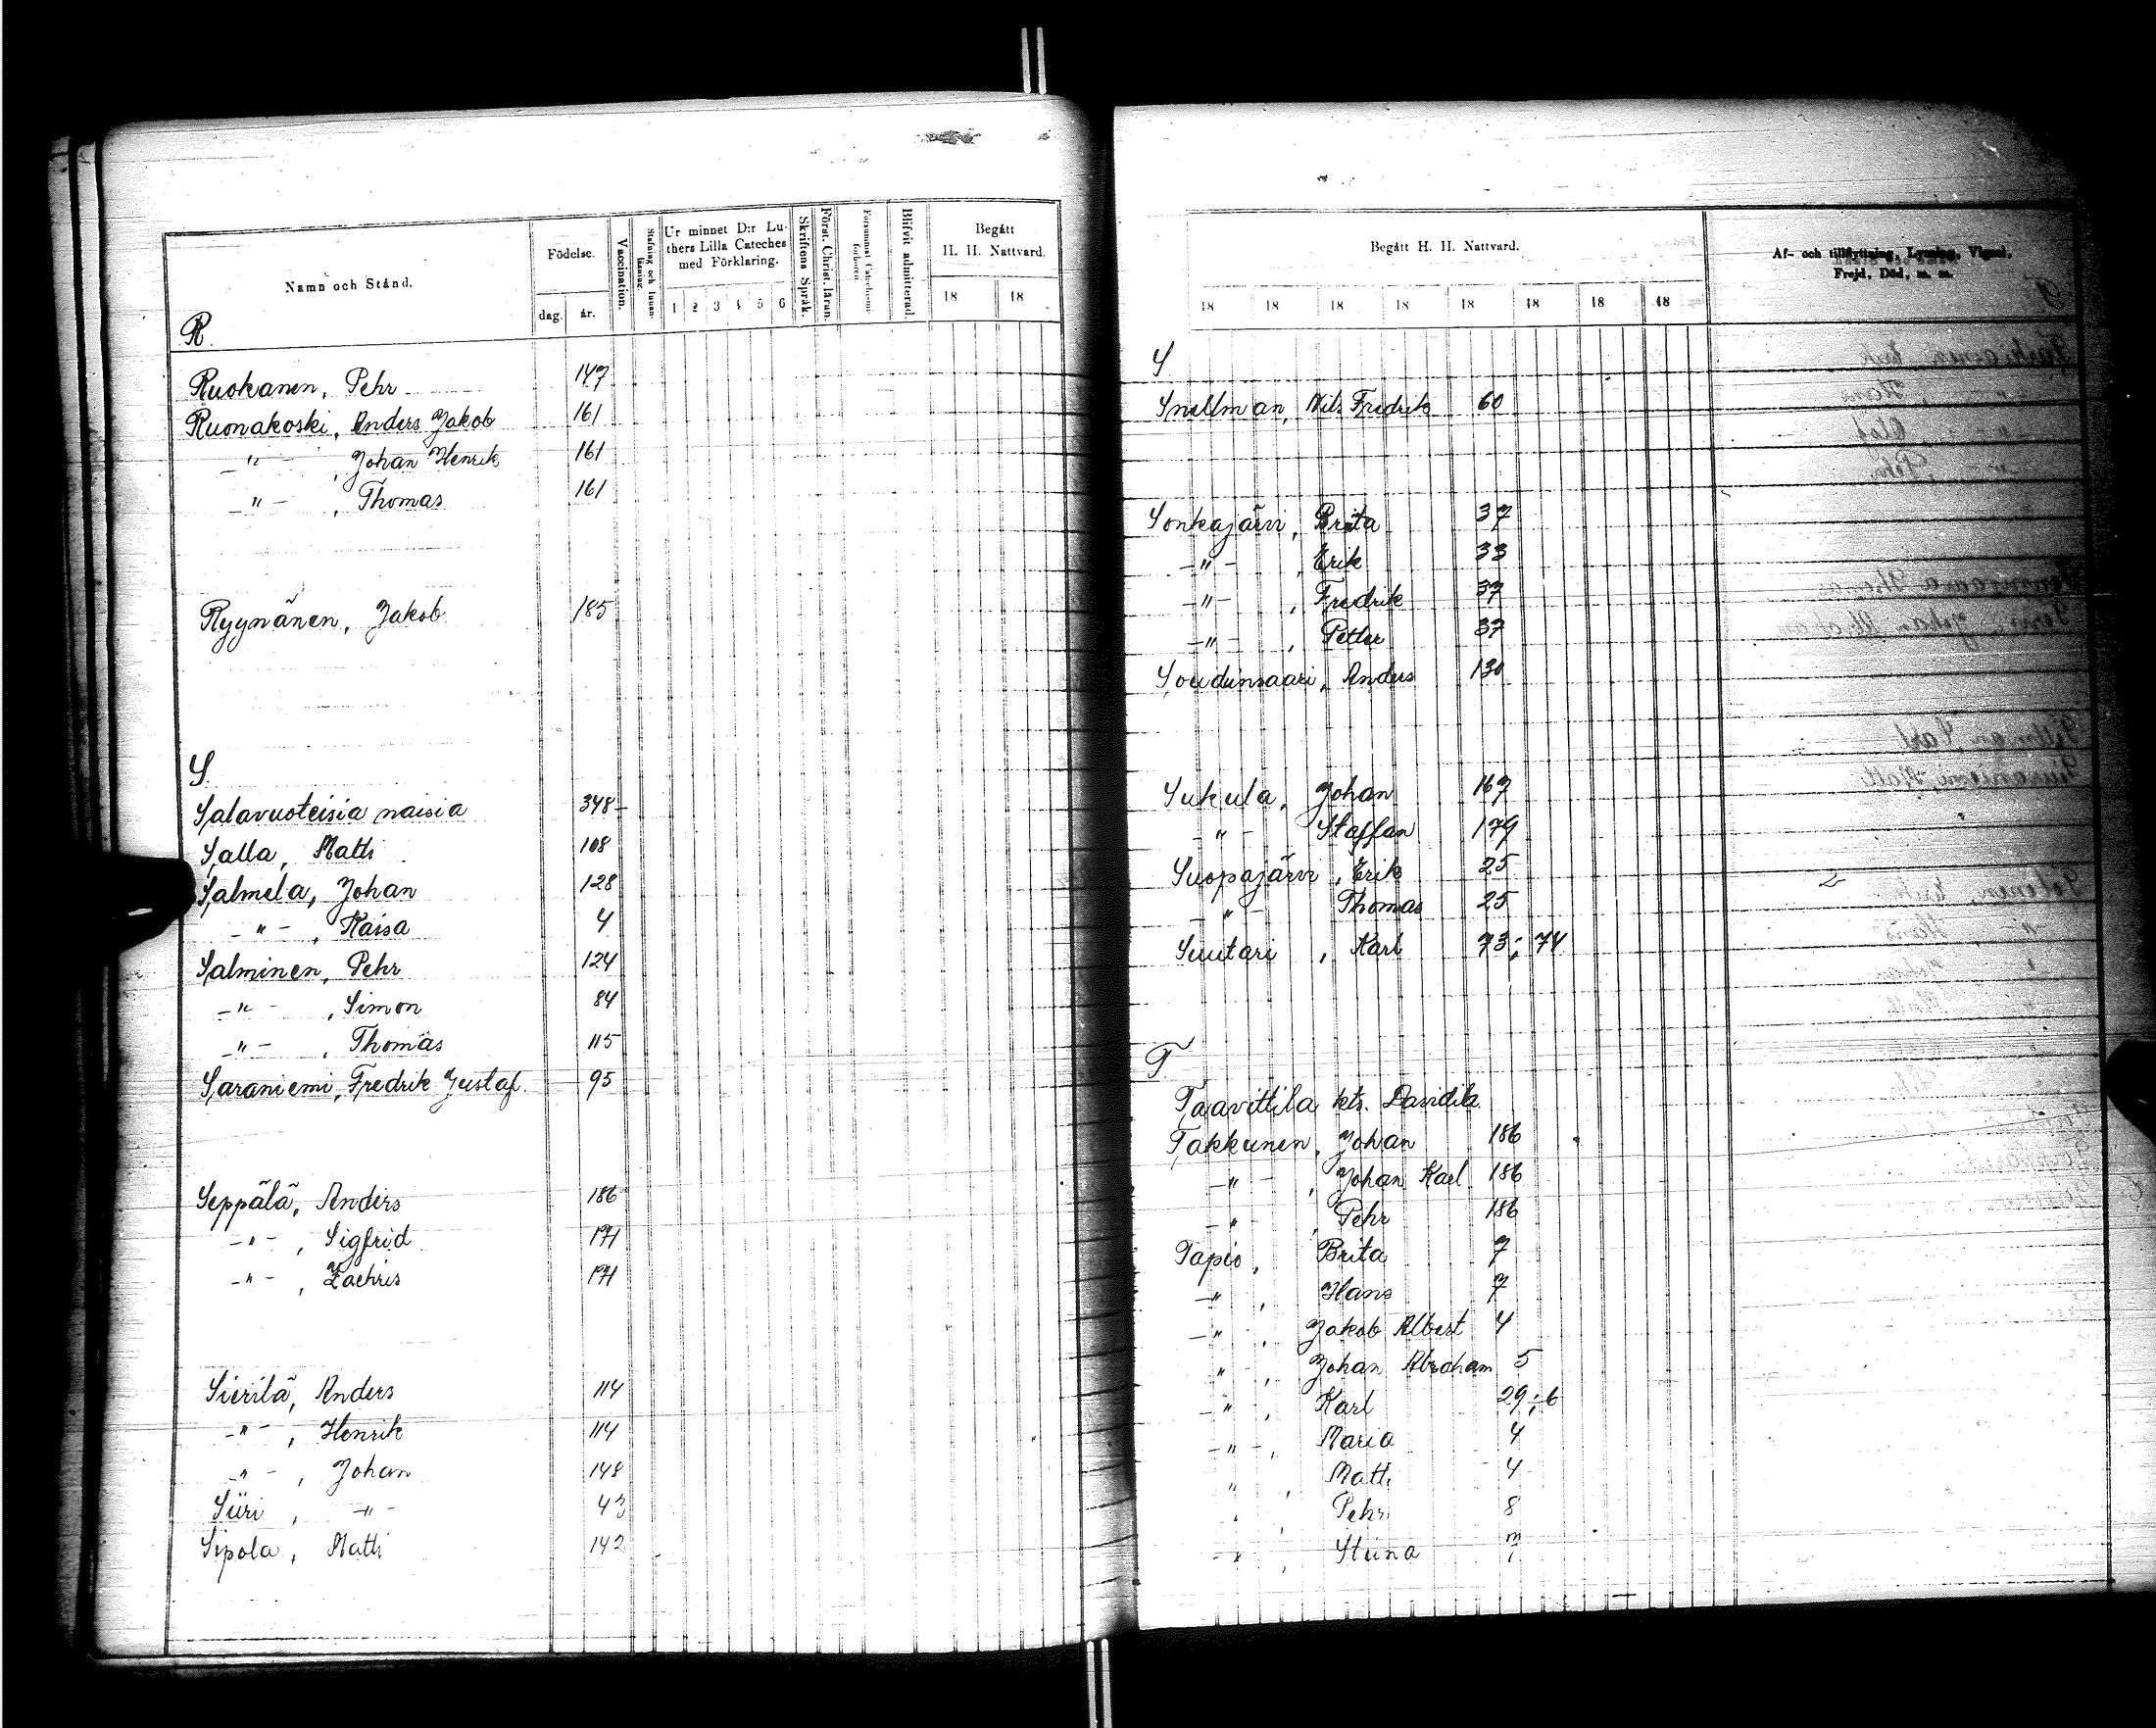 Namn och Stånd.
Födelse.
dag. år.
Vaccination.
Stafning och innan-läsning.
Ur minnet D:r Lu-
thers Lilla Cateches
med Förklaring.
1 2 3 4 5 6
Skriftens Språk.
Först. Christ. läran.
Försummat Catechismi förhören.
Blifvit admitterad
Begått
H. H. Nattvard.
18 18
R.
Ruokanen, Pehr 147
Ruonakoski, Anders Jakob 161
—"— , Johan Henrik 161
—"— , Thomas 161
Ryynänen, Jakob 185
S.
Salavuoteisia naisia 348
Salla, Matti 108
Salmela, Johan 128
—"— , Kaisa 4
Salminen, Pehr 124
—"— , Simon 84
—"— , Thomas 115
Saraniemi, Fredrik Gustaf 95
Seppälä, Anders 186
—"— , Sigfrid 171
—"— , Zachris 171
Sierilä, Anders 114
—"— , Henrik 114
—"— , Johan 148
Siiri , —"— 43
Sipola, Matti 142
Begått H. H. Nattvard.
18 18 18 18 18 18 18 18
Af- och tillflyttning, Lysning, Vigsel,
Frejd, Död, m. m.
S
Snellman, Nils Fredrik 60
Sonkajärvi, Brita 37
—"— , Erik 33
—"— , Fredrik 37
—"— , Petter 37
Soudunsaari, Anders 130
Sukula, Johan 167
—"— Staffan 179
Suopajärvi, Erik 25
—"— Thomas 25
Suutari , Karl 73; 74
T
Taavittila kts. Davidila
Takkunen, Johan 186
—"— , Johan Karl 186
—"— , Pehr 186
Tapio, Brita 7
—"— , Hans 7
—"— , Jakob Albert 4
" , Johan Abraham 5
—"— , Karl 29; 6
—"— , Maria 4
" , Matti 4
" , Pehr 8
—"— , Stiina 7